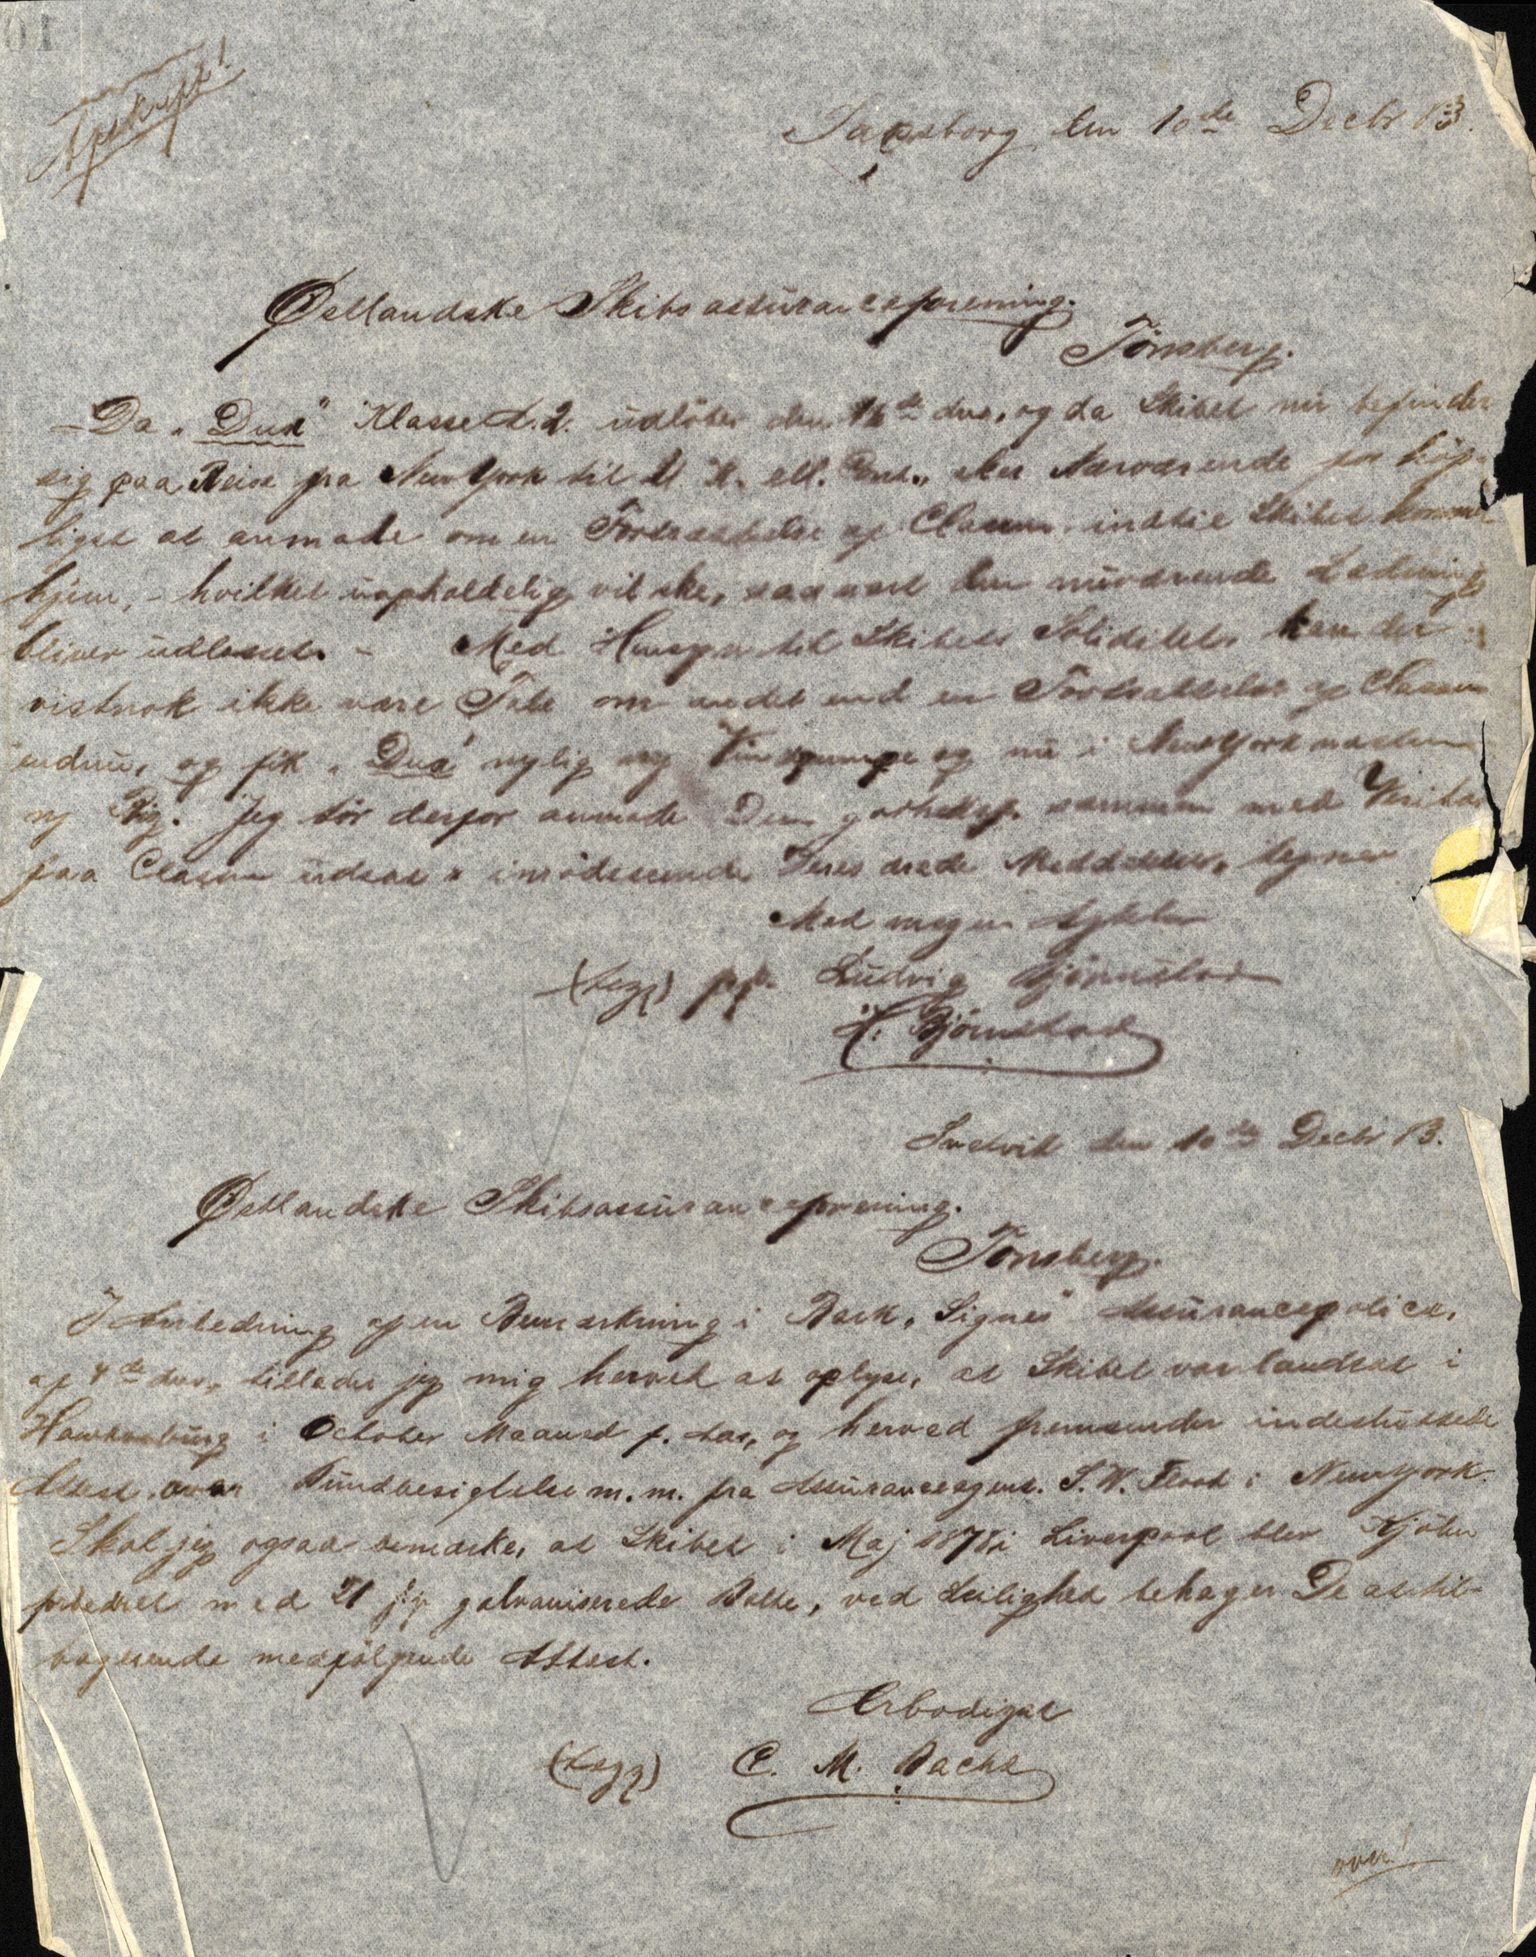 Afskrift!
Sarpsborg den 10de Decbr 83.
Østlandske Skibsassuranceforening.
Tönsberg.
Da "Dux" Klasse A.2. udlöber den 16de ds., og da Skibet nu befinder
sig paa Reise fra New York til U.K. ell. Cont., sker Nærværende for höf-
ligst at anmode om en Fortsættelse af Classen indtil Skibet kommer
hjem, - hvilket uopholdelig vil ske, saasart den nuværende Ladning
bliver udlosset. - Med Hensyn til Skibets Soliditet kan der
vistnok ikke være Tale om andet end en Fortsættelse af Classen
endnu, og fik "Dux" nylig ny Vindpumpe og nu i New York næsten
ny Rig. Jeg tör derfor anmode Dem godhedsf. sammen med Veritas
paa Classen udsat & imödeseende Deres ærede Meddelelse, tegner
Med megen Agtelse
(tegn) pp. Ludvig Bjørnstad
H. Bjørnstad
den 10de Decbr 83.
Østlandske Skibsassuranceforening.
Tönsberg.
I Anledning af en Bemærkning i Bark "Signes" Assurancepolice,
af 4de ds., tillader jeg mig herved at oplyse, at Skibet var landsat i
i October Maaned f. Aar, og herved fremsender indesluttede
Attest over Bundbesigtelse m.m. fra Assuranceagent. S.W. Flood i New York.
Skal jeg ogsaa bemærke, at Skibet i Maj 1878 i Liverpool blev Kjölen
med 21 galvaniserede Bolte, ved Leilighed behager De at til-
bagesende medfölgende Attest.
Ærbödigst
(tegn) C. M. Bache
over!